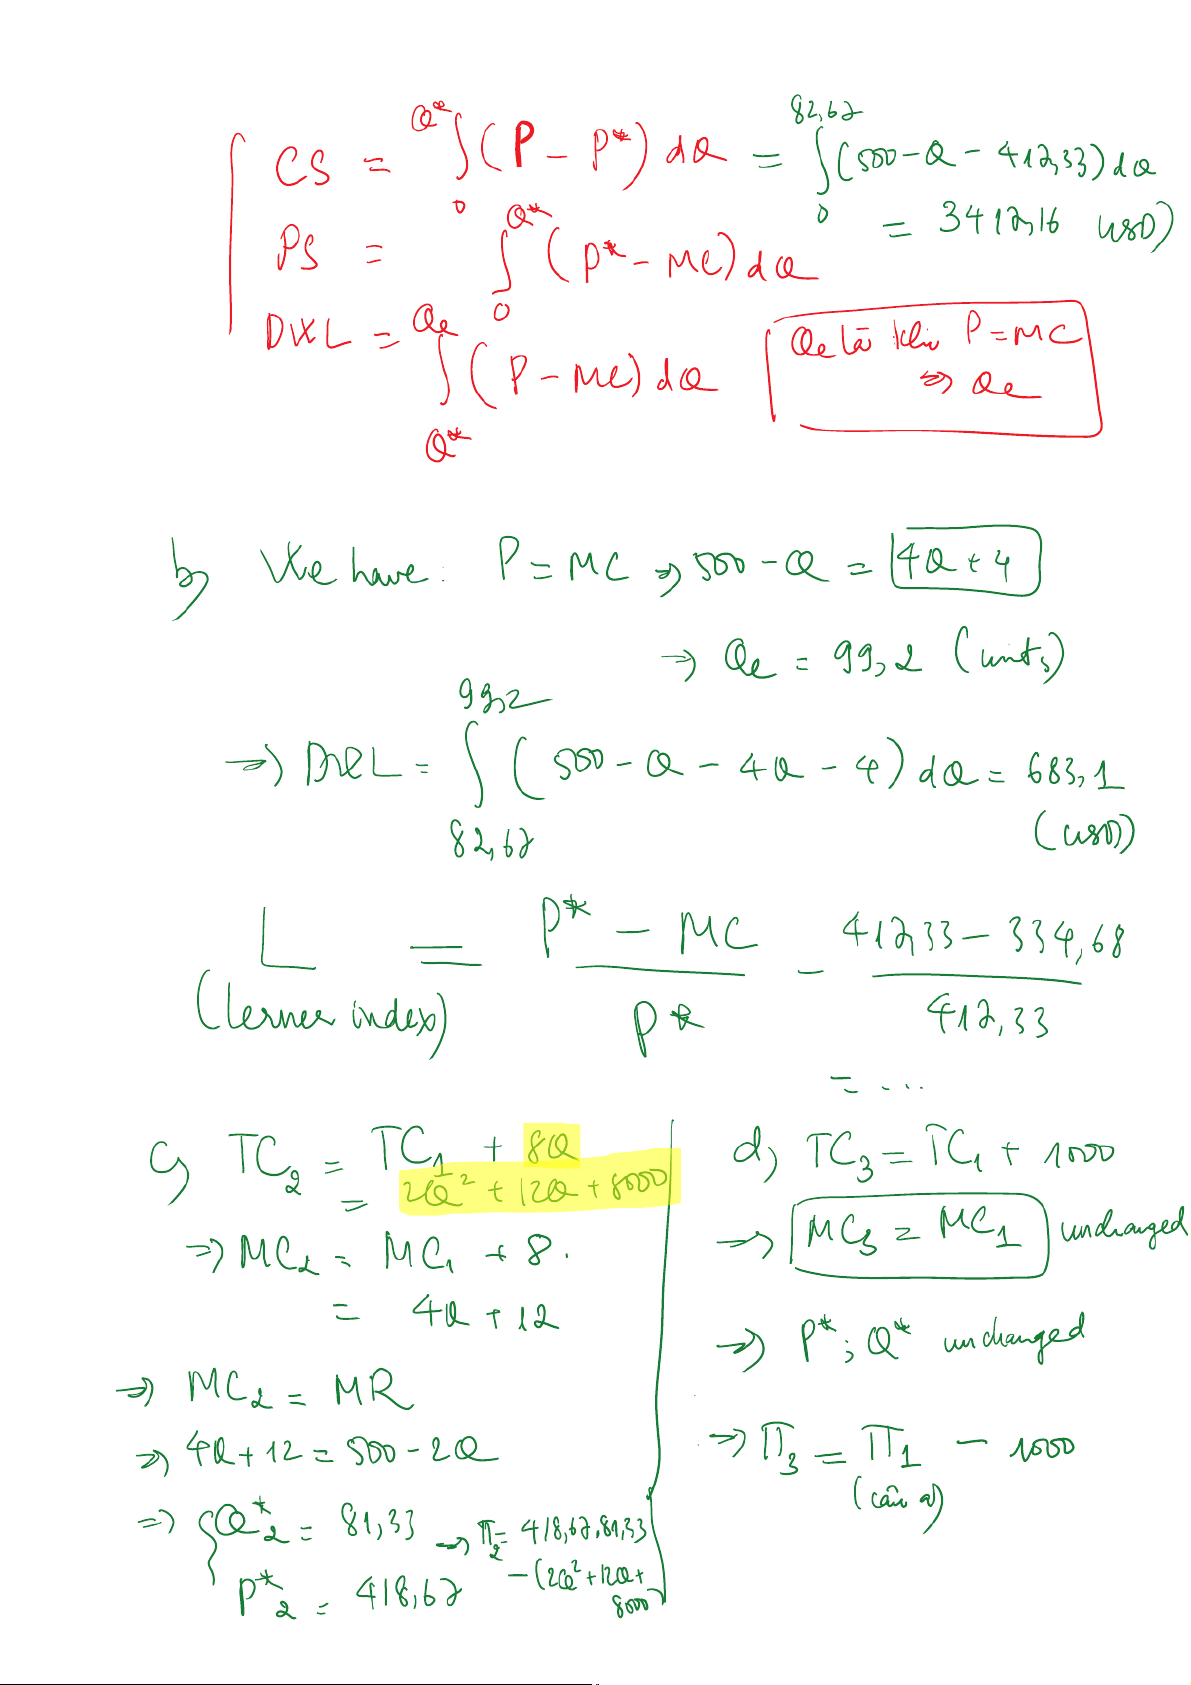 CS = ∫₀^Q* (P - P*) dQ = ∫₀^82,67 (500 - Q - 412,33) dQ
= 3412,16 USD)
PS = ∫₀^Q* (P* - MC) dQ
DWL = ∫_Q*^Qe (P - MC) dQ
Qe là khi P = MC
=> Qe
b) We have: P = MC => 500 - Q = 4Q + 4
=> Qe = 99,2 (units)
=> DWL = ∫_82,67^99,2 (500 - Q - 4Q - 4) dQ = 683,1
(USD)
L = (P* - MC) / P* = (412,33 - 334,68) / 412,33
(lerner index)
= ...
c) TC₂ = TC₁ + 8Q
= 2Q² + 12Q + 8000
=> MC₂ = MC₁ + 8.
= 4Q + 12
=> MC₂ = MR
=> 4Q + 12 = 500 - 2Q
=> { Q*₂ = 81,33
P*₂ = 418,67
=> π₂ = 418,67.81,33
- (2Q² + 12Q +
8000)
d) TC₃ = TC₁ + 1000
=> MC₃ = MC₁ unchanged
=> P*; Q* unchanged
=> π₃ = π₁ - 1000
(câu a)